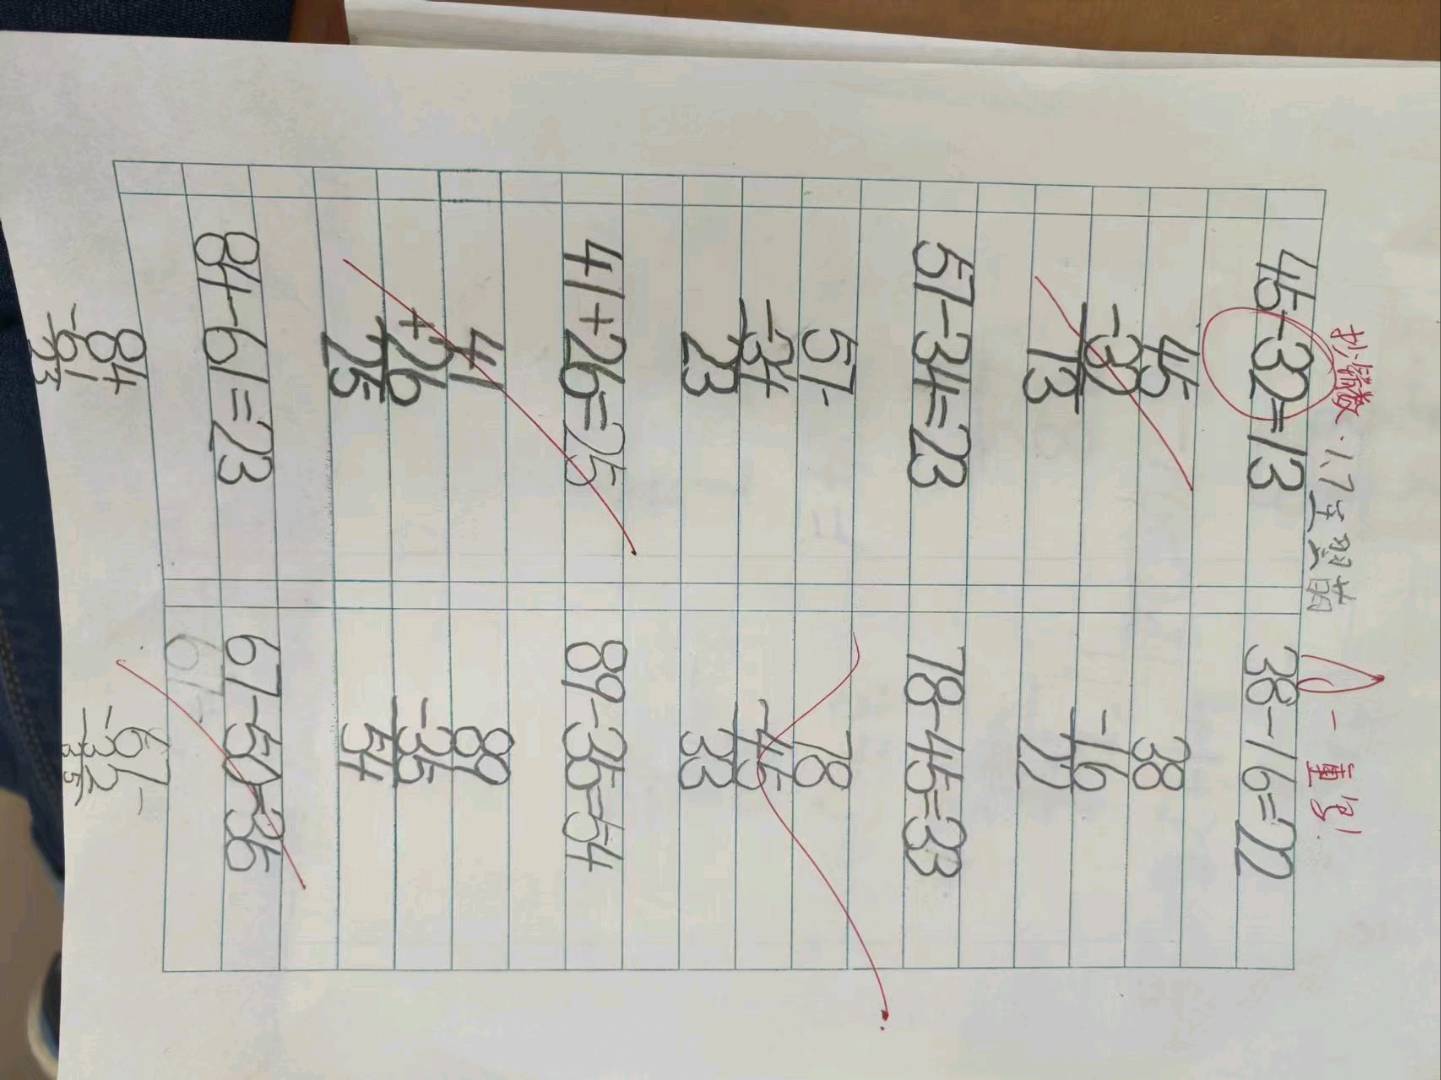 抄错数.
1.7
一重写!
45-32=13
38-16=22
45
-32
13
38
-16
22
57-34=23
78-45=33
57-
-34
23
78
-45
33
41+26=25
89-35=54
41
+26
25
89
-35
54
84-61=23
67-50=35
67-
84
-61
23
67-
-35